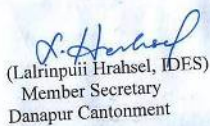 (Lalrinpuii Hrahsel, IDES)
Member Secretary
Danapur Cantonment